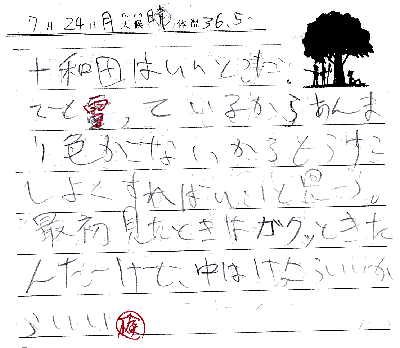 7月24日月天候晴体温36.5
十和田はいいとこだ。
でも曇っているからあんま
り色がでないからもうすこ
しよくすればいいと思う。
最初見たときはガクッときた
んだけど中はけっこういいか
らいい